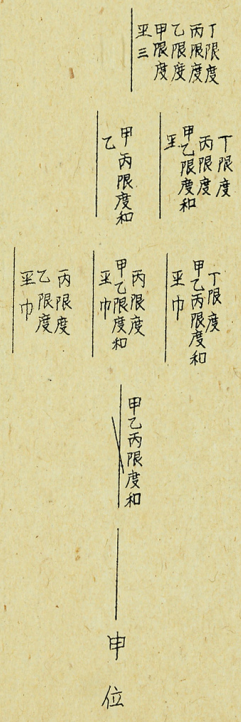 丁限度
丙限度
乙限度
甲限度
三
丁限度
丙限度
甲乙限度和
甲丙限度和
乙
丁限度
甲乙丙限度和
巾
丙限度
甲乙限度和
巾
丙限度
乙限度
巾
甲乙丙限度和
申位